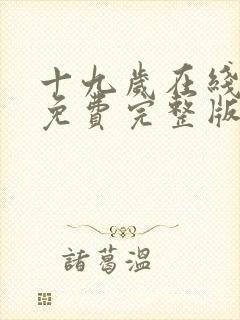 十九歲在綫
免費完整版
諸葛溫